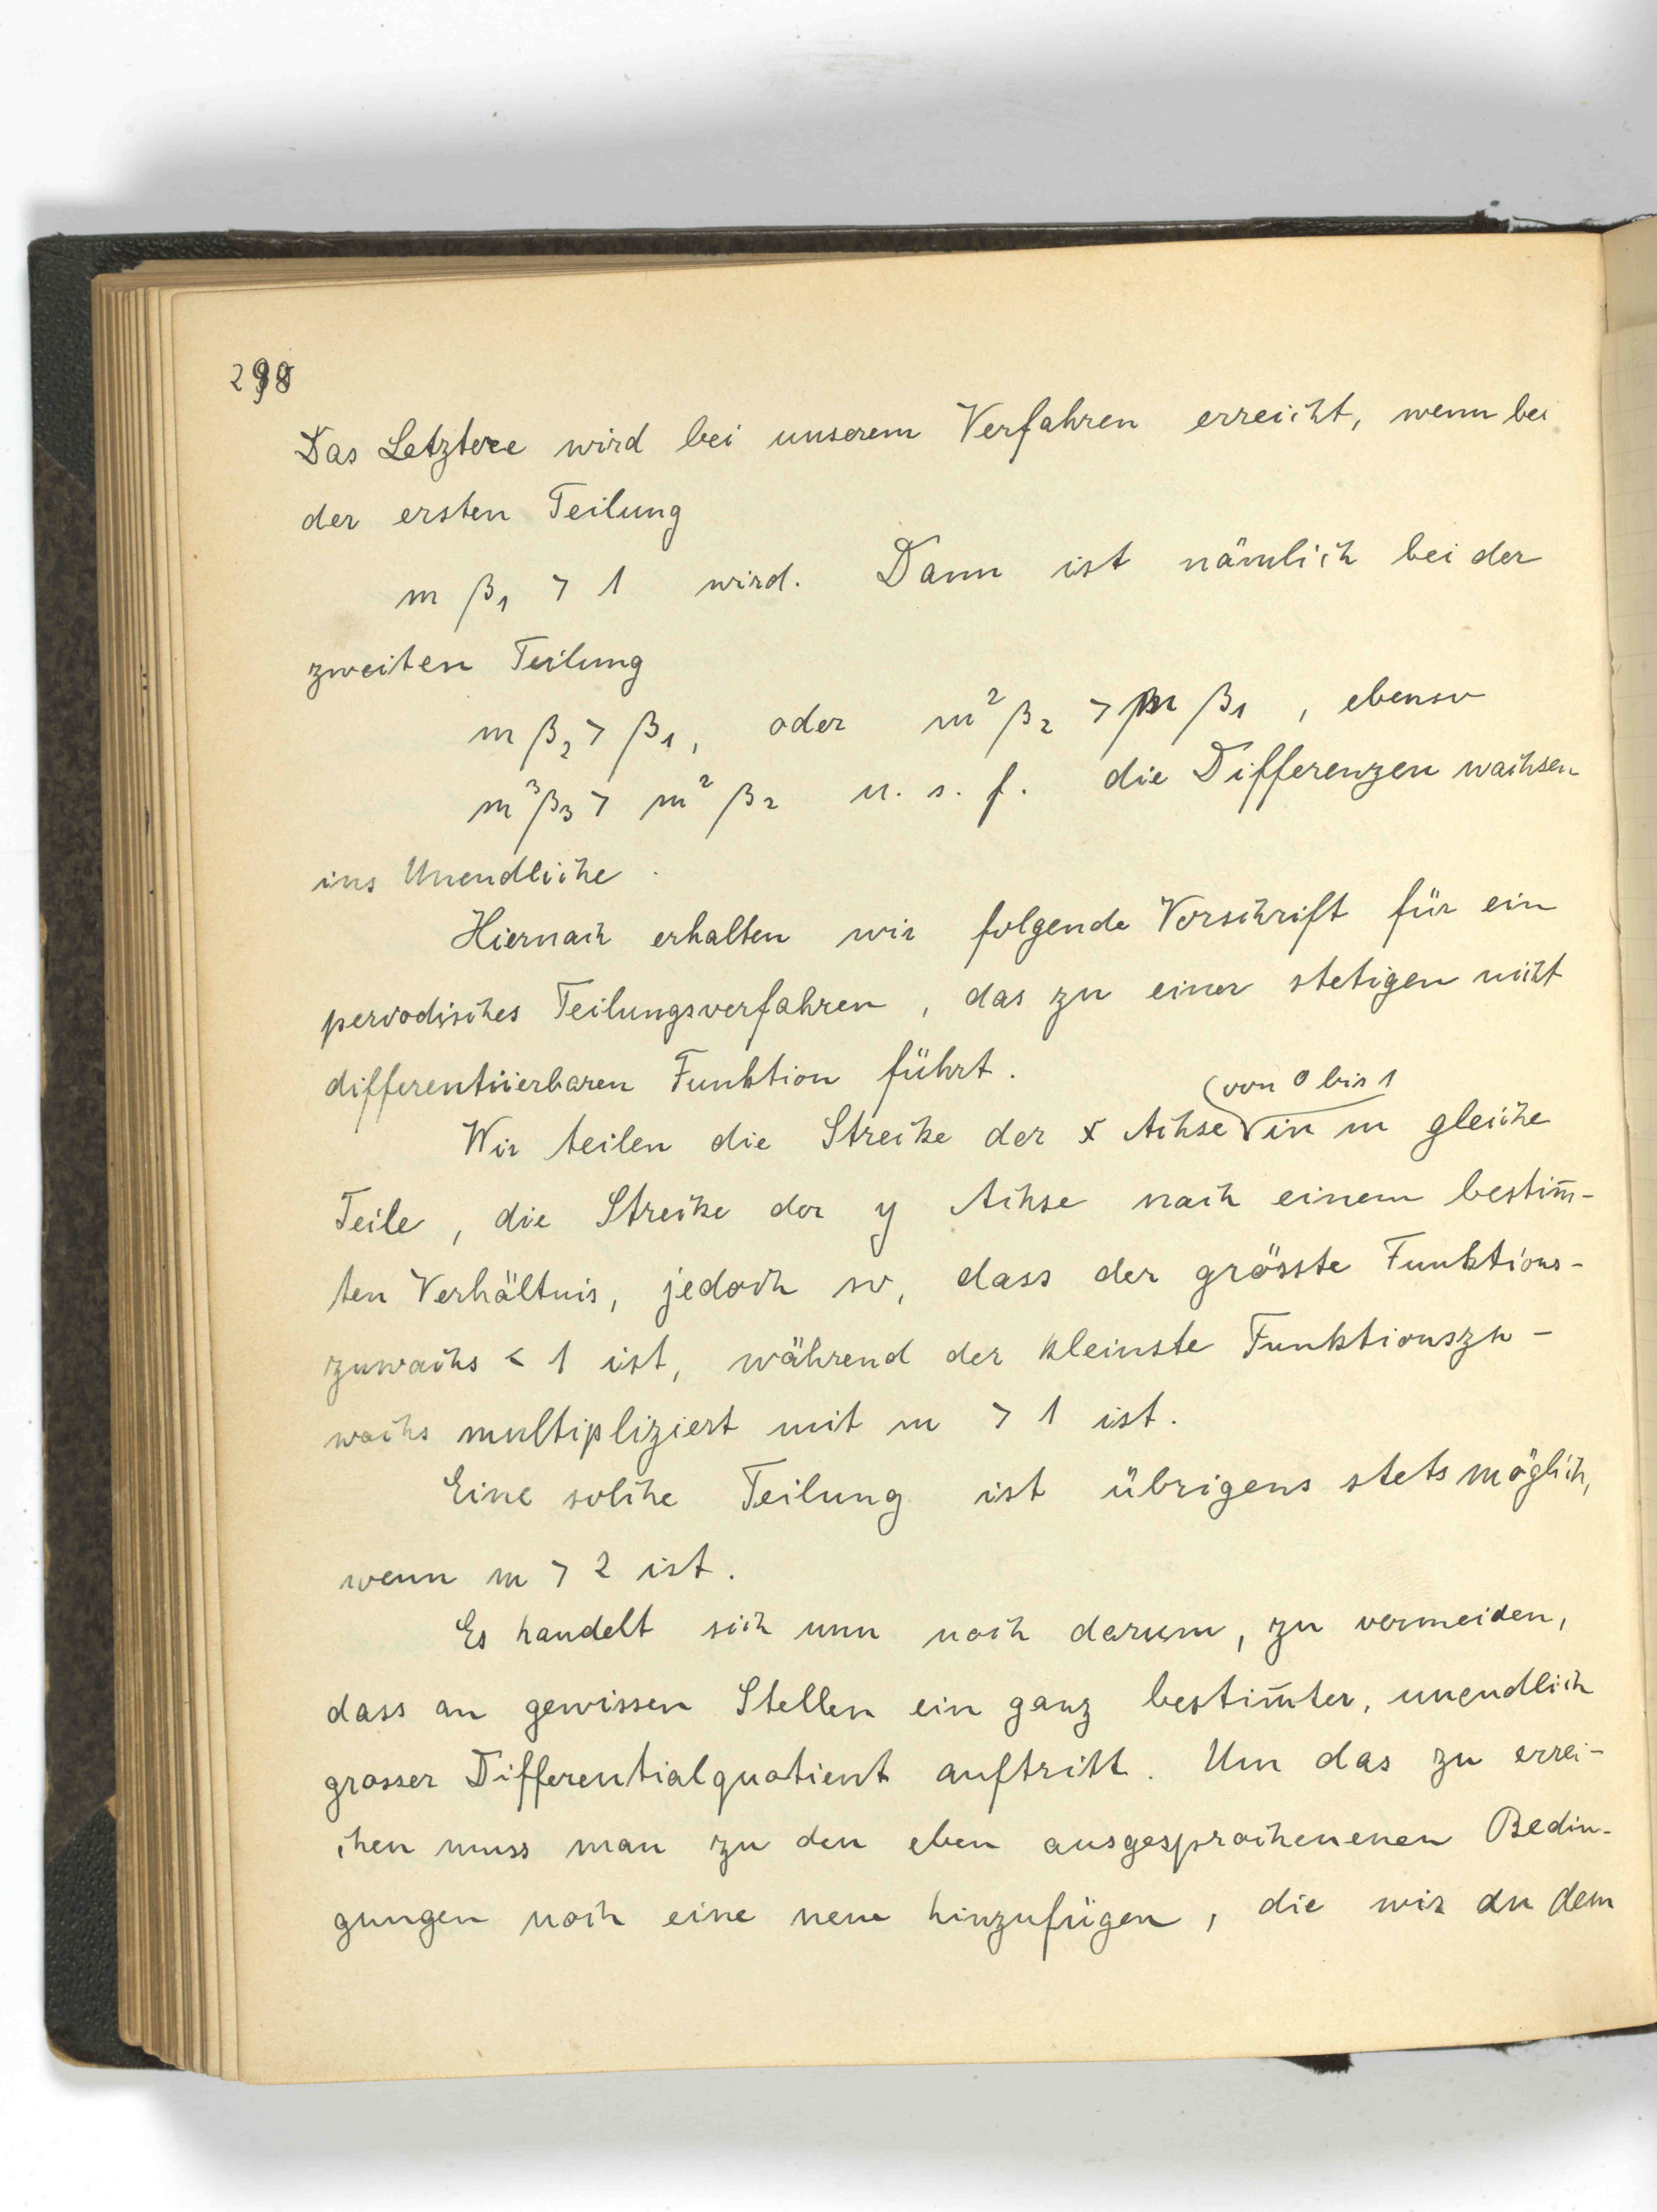 298
Das Letztere wird bei unserem Verfahren erreicht, wenn bei
der ersten Teilung
m β₁ > 1 wird. Dann ist nämlich bei der
zweiten Teilung
m β₂ > β₁, oder m² β₂ > m β₁, ebenso
m³ β₃ > m² β₂ u. s. f. die Differenzen wachsen
ins Unendliche.
Hiernach erhalten wir folgende Vorschrift für ein
periodisches Teilungsverfahren, das zu einer stetigen nicht
differentiierbaren Funktion führt.
(von 0 bis 1
Wir teilen die Strecke der x Achse in m gleiche
Teile, die Strecke der y Achse nach einem bestim̄-
ten Verhältnis, jedoch so, dass der grösste Funktions-
zuwachs < 1 ist, während der kleinste Funktionszu-
wachs multipliziert mit m > 1 ist.
Eine solche Teilung ist übrigens stets möglich,
wenn m > 2 ist.
Es handelt sich nun noch darum, zu vermeiden,
dass an gewissen Stellen ein ganz bestim̄ter, unendlich
grosser Differentialquotient auftritt. Um das zu errei-
chen muss man zu den eben ausgesprochenenen Bedin-
gungen noch eine neue hinzufügen, die wir an dem